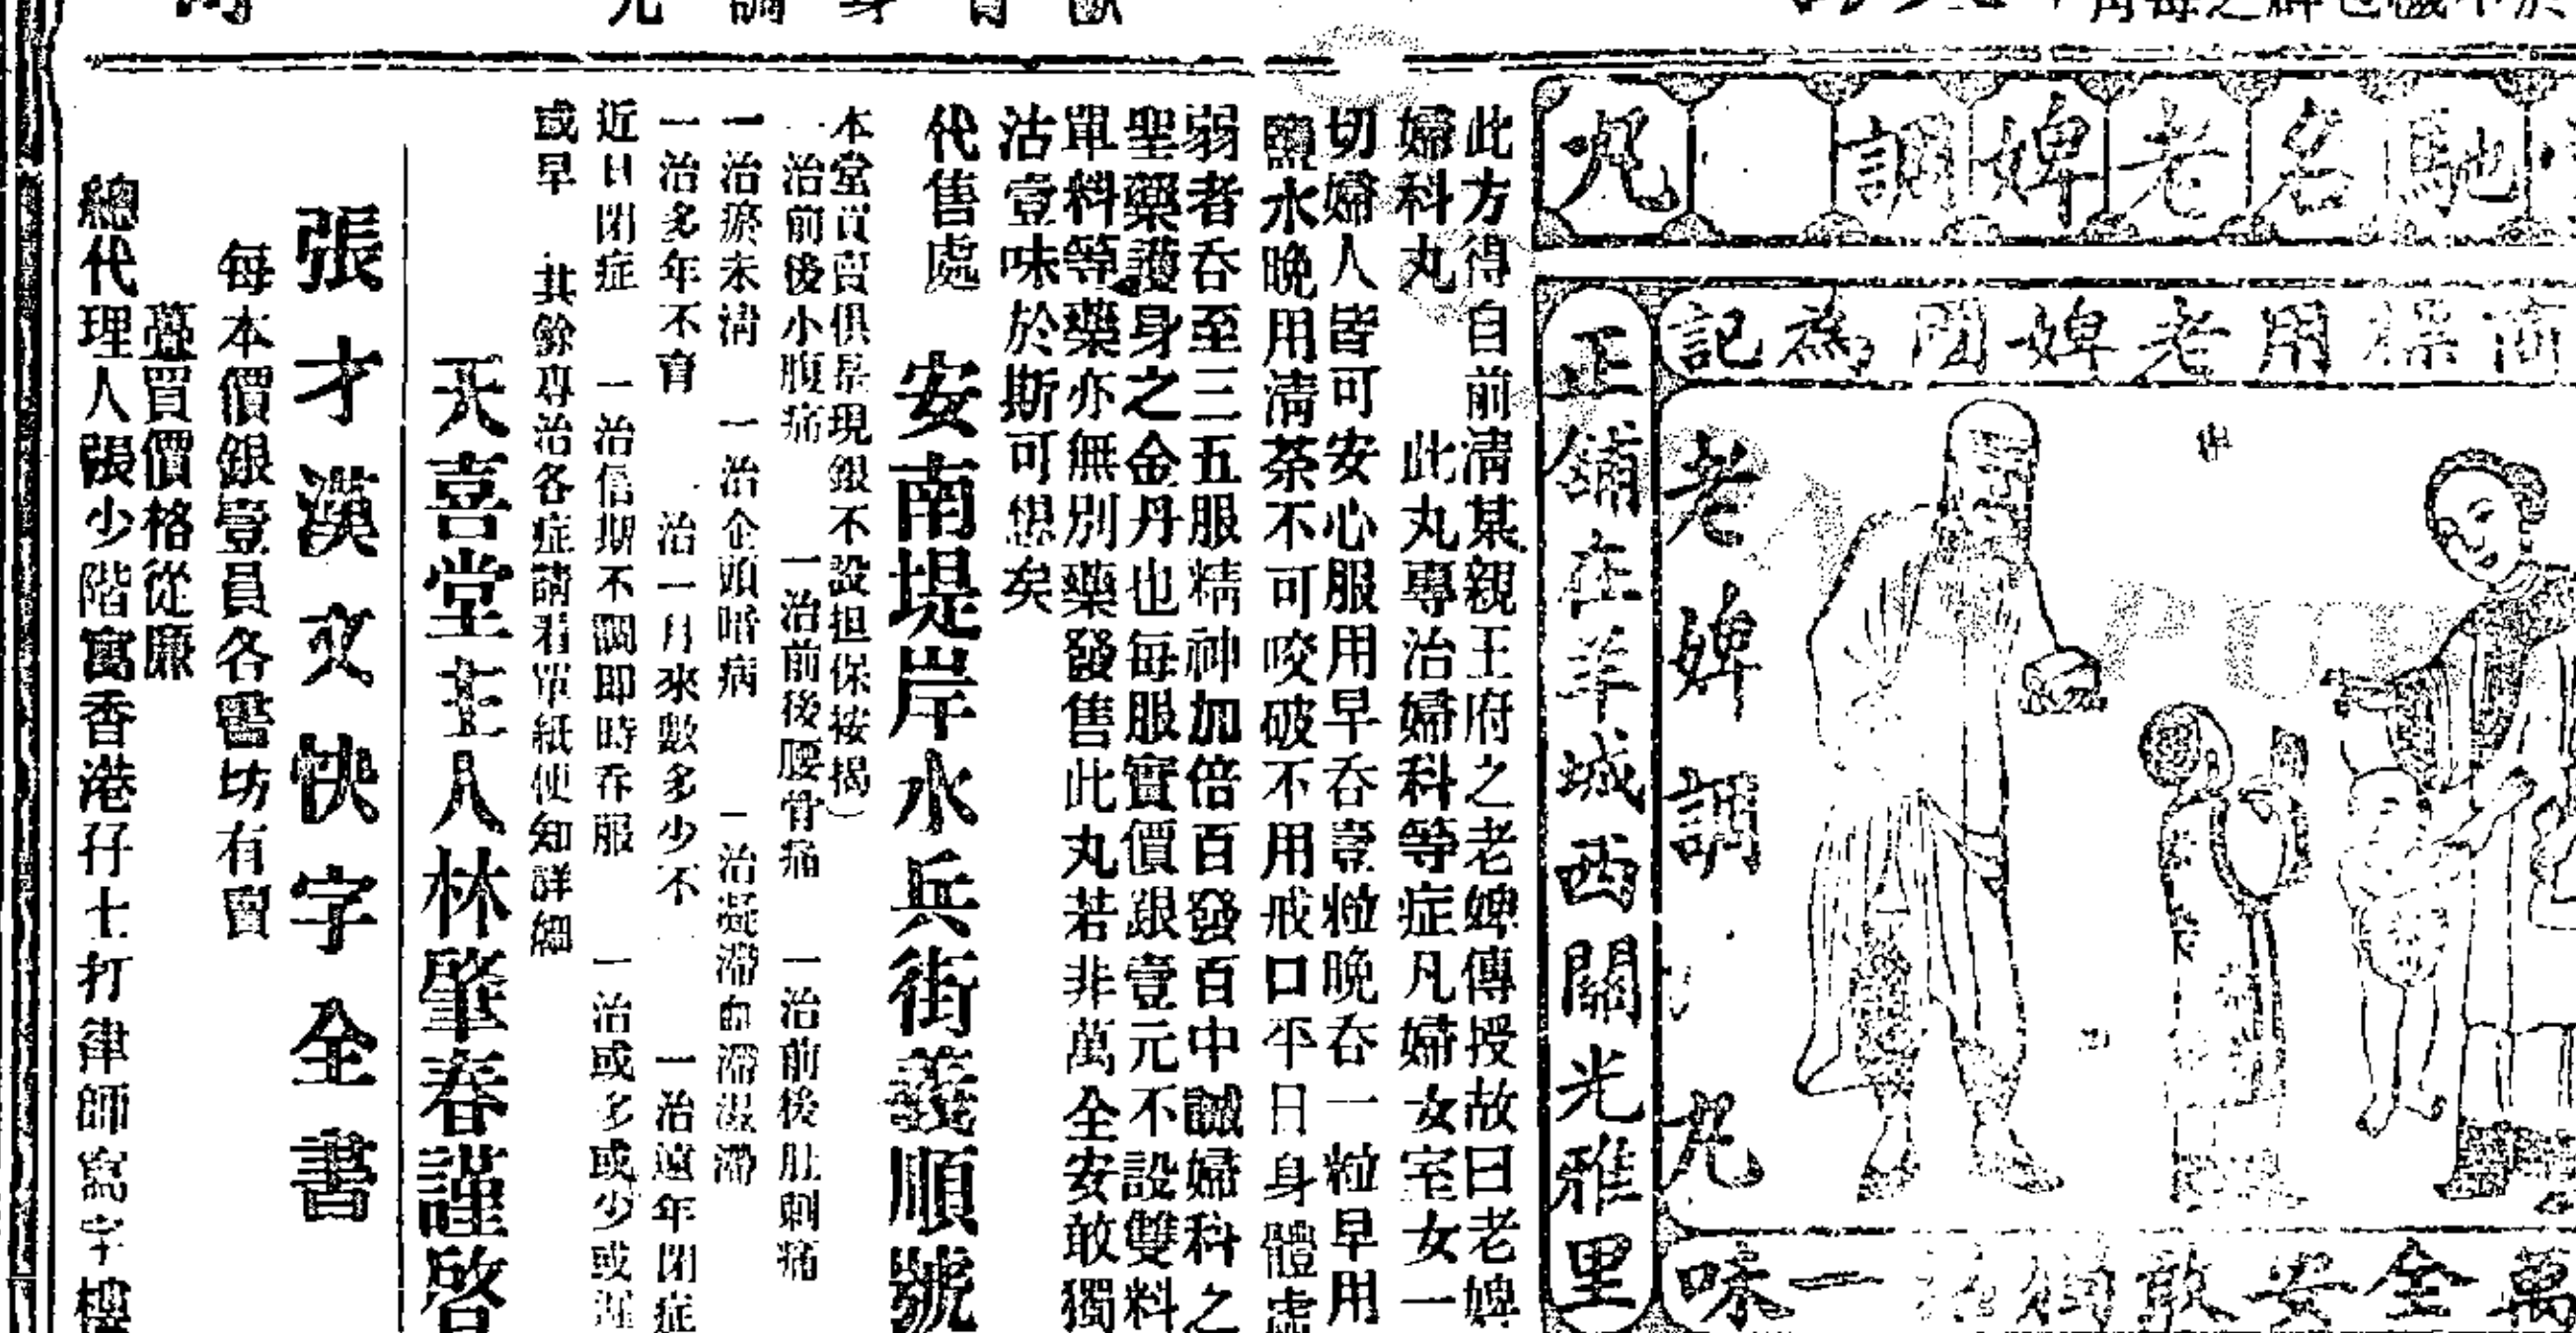 馳名老婢調 丸
商標用老婢圖為記
老婢調 丸
萬全安敢獨沽一味
正舖在羊城西關光雅里
此方得自前清某親王府之老婢傳授故曰老婢
婦科丸 此丸專治婦科等症凡婦女室女一
切婦人皆可安心服用早吞壹粒晚吞一粒早用
鹽水晚用清茶不可咬破不用戒口平日身體虛
弱者吞至三五服精神加倍百發百中誠婦科之
聖藥護身之金丹也每服實價銀壹元不設雙料
單料等藥亦無別藥發售此丸若非萬全安敢獨
沽壹味於斯可想矣
代售處 安南堤岸水兵街義順號
本堂買賣俱是現銀不設担保按揭）
一治前後小腹痛 一治前後腰骨痛 一治前後肚刺痛
一治瘀未清 一治企頭暗病 一治凝滯血滯濕滯
一治多年不育 一治一月來數多少不 一治遠年閉症
近日閉症 一治信期不調即時吞服 一治或多或少或遲
或早 其餘專治各症請看單紙便知詳細
天喜堂主人林肇春謹啓
張才漢文快字全書
每本價銀壹員各書坊有賣
躉買價格從廉
總代理人張少階寓香港孖士打律師寫字樓